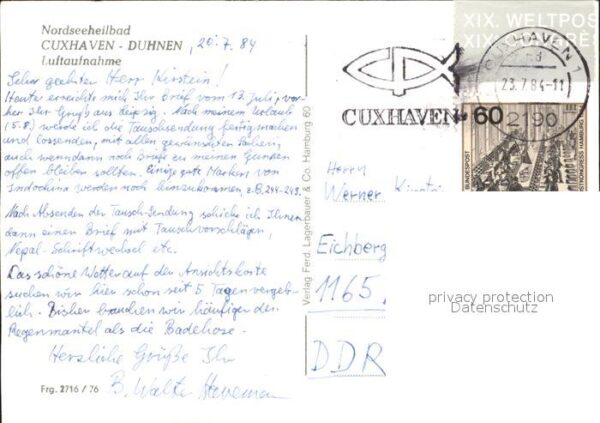 Nordseeheilbad
CUXHAVEN - DUHNEN, 20.7.84
Luftaufnahme
Sehr geehrter Herr Kirstein!
Heute erreichte mich Ihr Brief vom 12. Juli, vor-
her Ihr Gruß aus Leipzig. Nach meinem Urlaub
(5.8.) werde ich die Tauschsendung fertigmachen
und lossenden, mit allen gewünschten Sachen,
auch wenn dann noch Briefe zu meinen Gunsten
offen bleiben sollten. Einige gute Marken von
Indochina werden noch hinzukommen, z.B. 244-249.
Nach Absenden der Tausch-Sendung schicke ich Ihnen
dann einen Brief mit Tauschvorschlägen,
Nepal-Schriftwechsel etc.
Das schöne Wetter auf der Ansichtskarte
suchen wir hier schon seit 5 Tagen vergeb-
lich. Bisher brauchen wir häufiger den
Regenmantel als die Badehose.
Herzliche Grüße Ihr
B. Walter
Frg. 2716 / 76
Verlag Ferd. Lagerbauer & Co. Hamburg 60
XIX. WELTPOS
XIX. CONGRÈS
CUXHAVEN 1
23.7.84-11
2190
CUXHAVEN
60
DEUTSCHE BUNDESPOST
WELTPOSTKONGRESS HAMBURG
Herrn
Werner Kirstein
Eichberg
1165,
DDR
privacy protection
Datenschutz